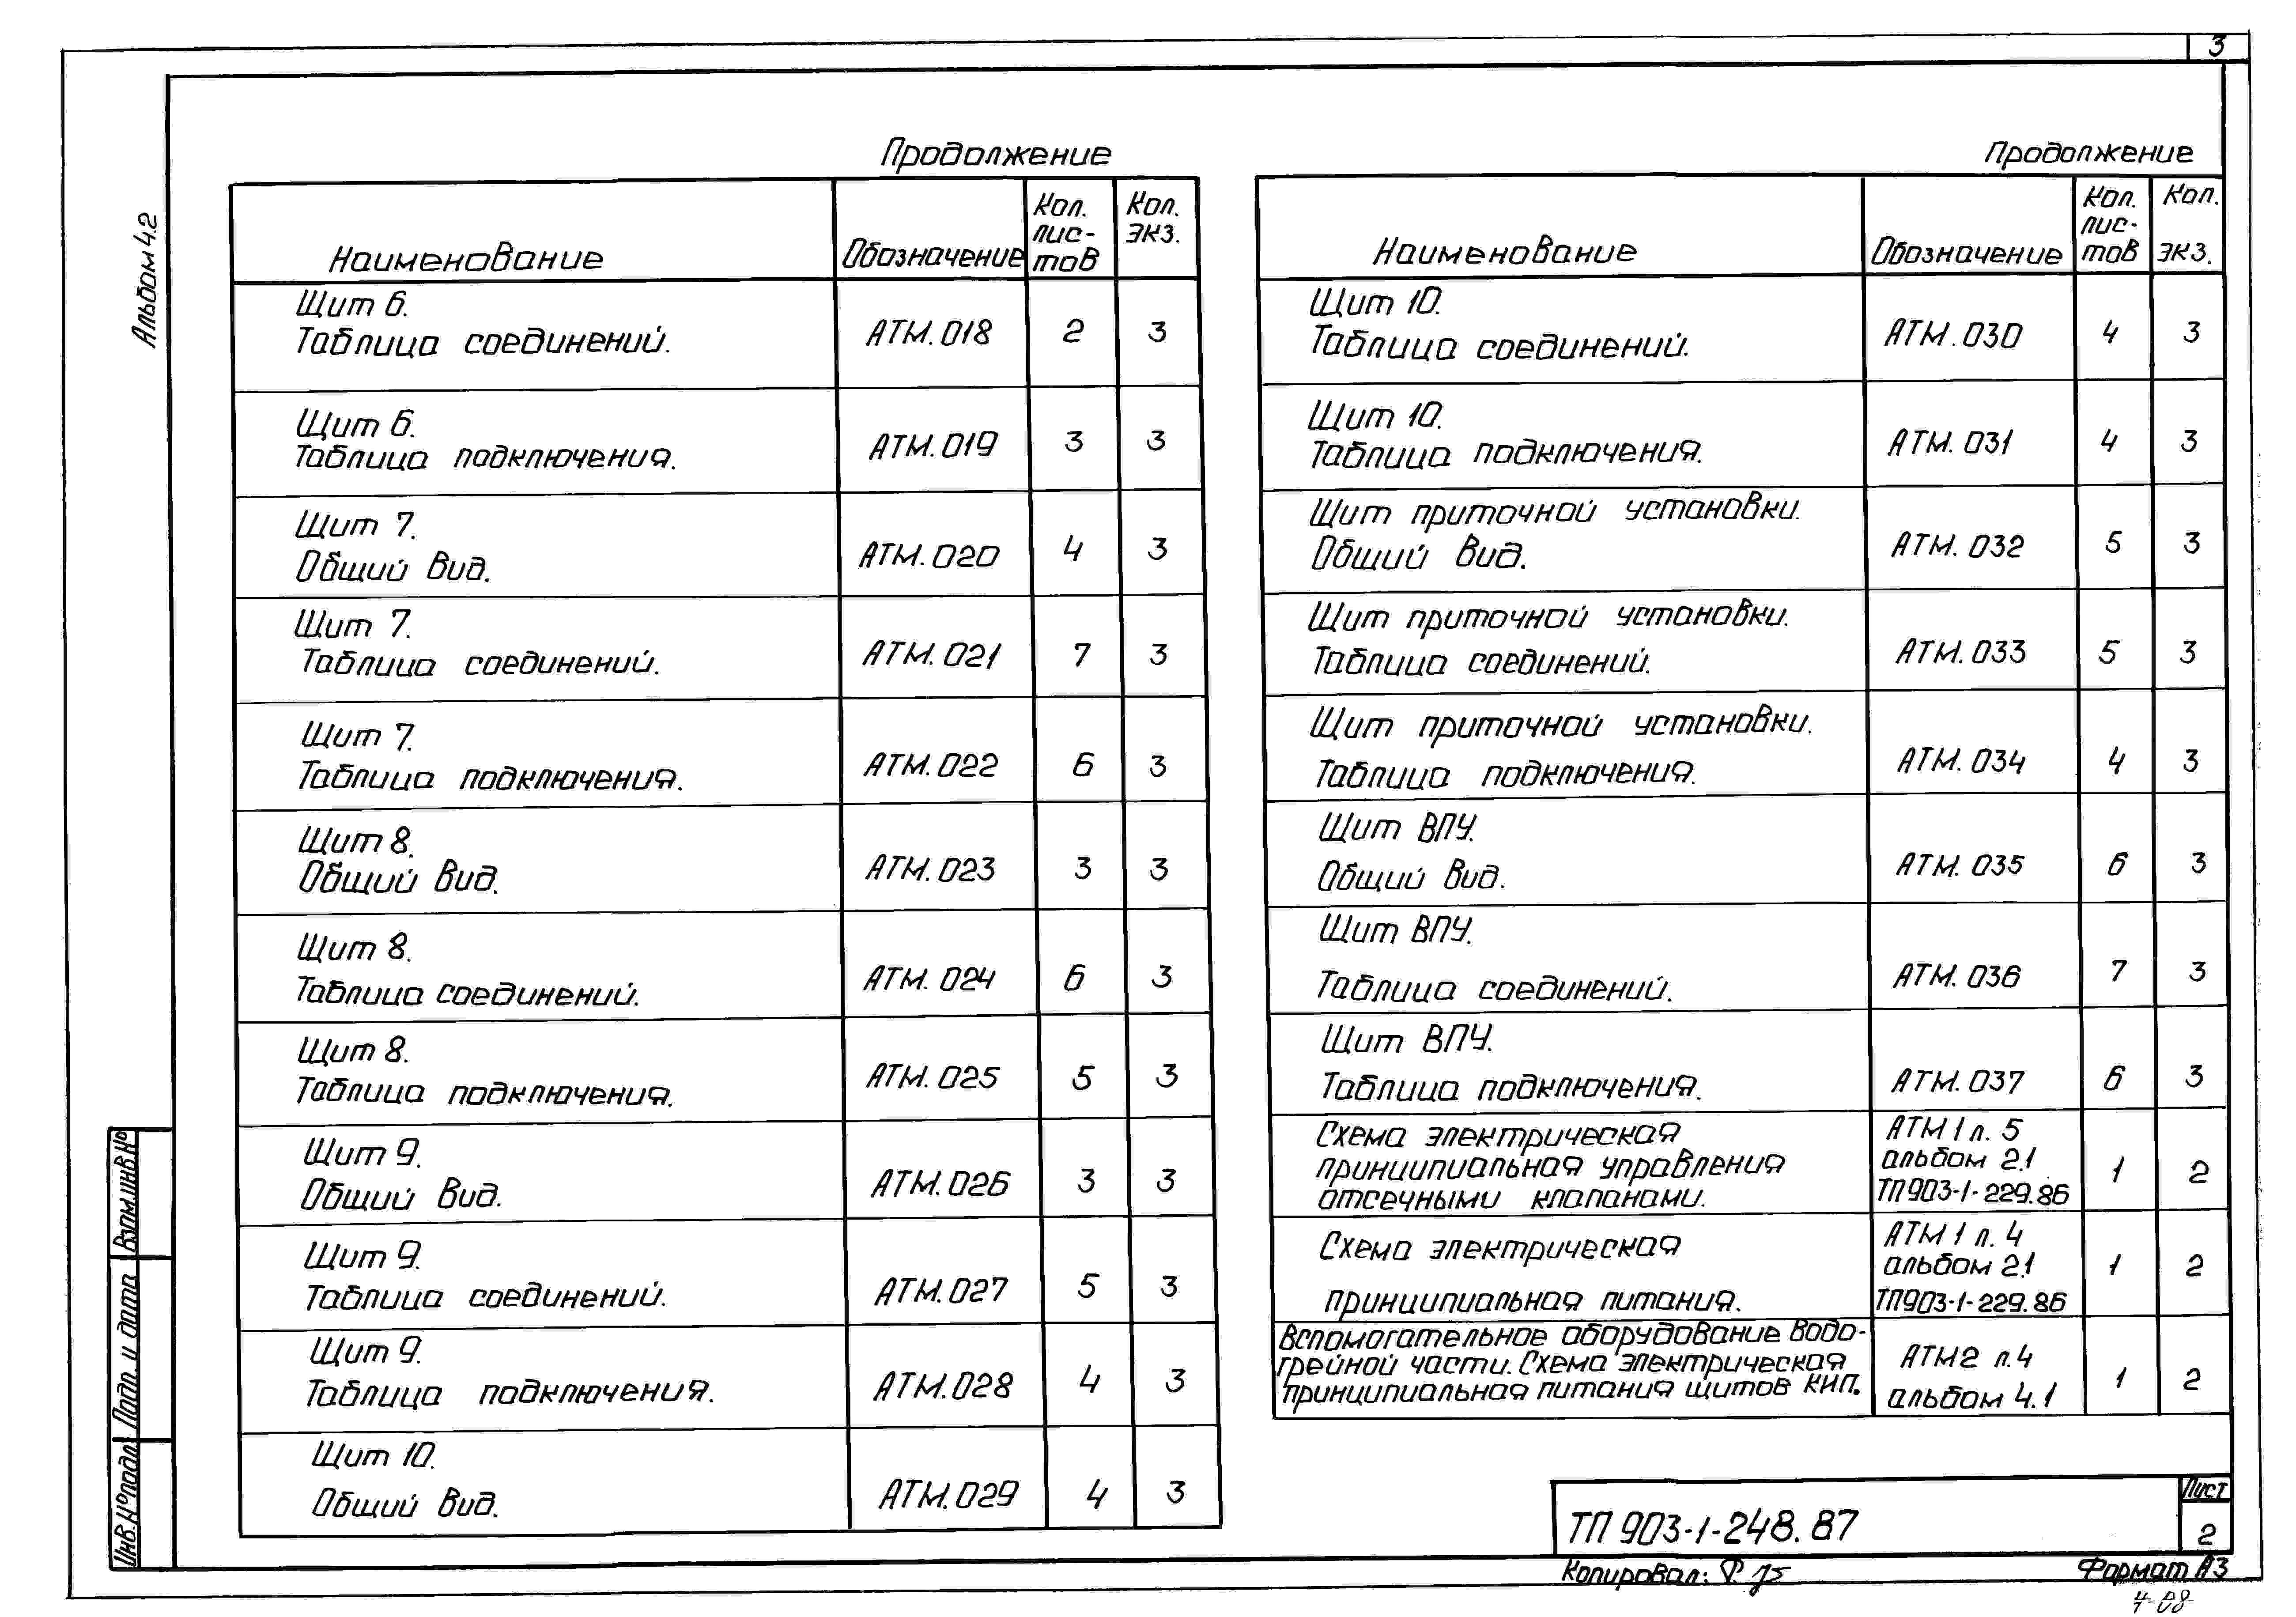 3
Альбом 4.2
Продолжение
Наименование
Обозначение
Кол. лис-
тов
Кол. экз.
Щит 6.
Таблица соединений.
АТМ.018 2 3
Щит 6.
Таблица подключения.
АТМ.019 3 3
Щит 7.
Общий вид.
АТМ.020 4 3
Щит 7.
Таблица соединений.
АТМ.021 7 3
Щит 7.
Таблица подключения.
АТМ.022 6 3
Щит 8.
Общий вид.
АТМ.023 3 3
Щит 8.
Таблица соединений.
АТМ.024 6 3
Щит 8.
Таблица подключения.
АТМ.025 5 3
Щит 9.
Общий вид.
АТМ.026 3 3
Щит 9.
Таблица соединений.
АТМ.027 5 3
Щит 9.
Таблица подключения.
АТМ.028 4 3
Щит 10.
Общий вид.
АТМ.029 4 3
Продолжение
Наименование
Обозначение
Кол. лис-
тов
Кол. экз.
Щит 10.
Таблица соединений.
АТМ.030 4 3
Щит 10.
Таблица подключения.
АТМ.031 4 3
Щит приточной установки.
Общий вид.
АТМ.032 5 3
Щит приточной установки.
Таблица соединений.
АТМ.033 5 3
Щит приточной установки.
Таблица подключения.
АТМ.034 4 3
Щит ВПУ.
Общий вид.
АТМ.035 6 3
Щит ВПУ.
Таблица соединений.
АТМ.036 7 3
Щит ВПУ.
Таблица подключения.
АТМ.037 6 3
Схема электрическая
принципиальная управления
отсечными клапанами.
АТМ1 л. 5
альбом 2.1
ТП903-1-229.86
1 2
Схема электрическая
принципиальная питания.
АТМ1 л. 4
альбом 2.1
ТП903-1-229.86
1 2
Вспомогательное оборудование водо-
грейной части. Схема электрическая
принципиальная питания щитов КИП.
АТМ2 л.4
альбом 4.1
1 2
Взам.инв.№
Подп. и дата
Инв.№подл.
ТП 903-1-248.87
Лист
2
Копировал:
Формат А3